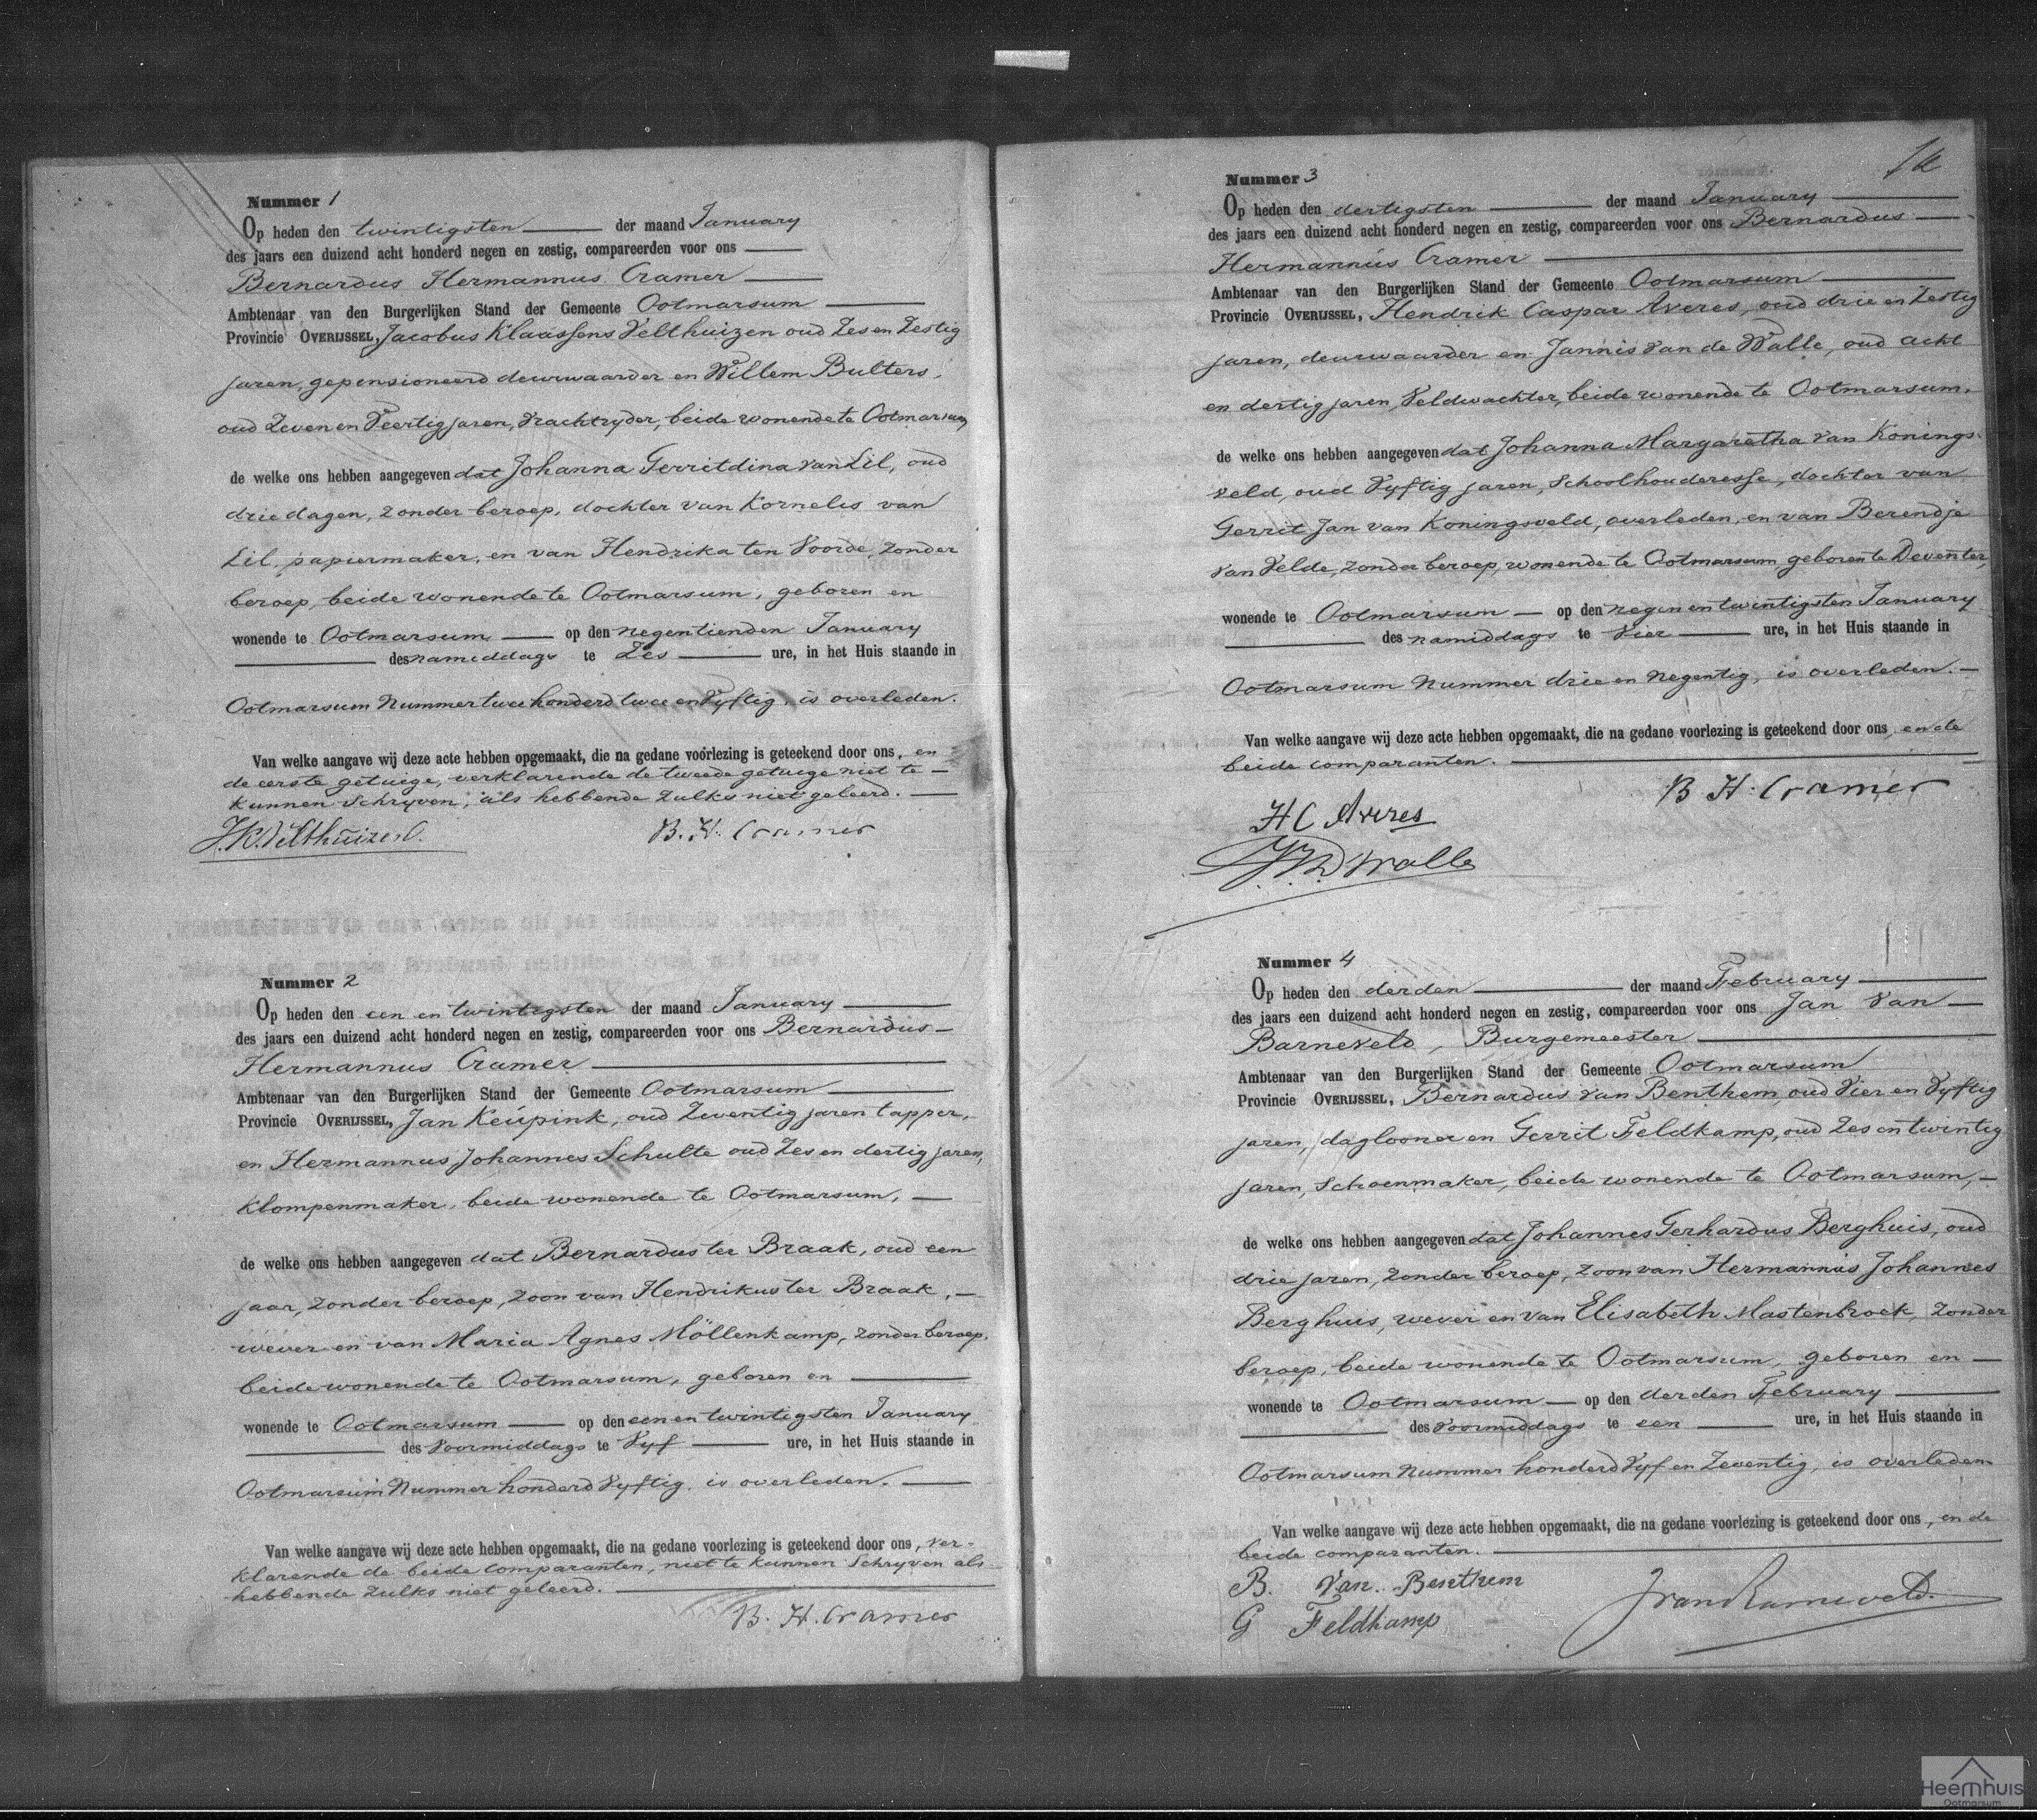 Nummer 1
Op heden den twintigsten der maand January
des jaars een duizend acht honderd negen en zestig, compareerden voor ons
Bernardus Hermannus Cramer
Ambtenaar van den Burgerlijken Stand der Gemeente Ootmarsum
Provincie OVERIJSSEL, Jacobus Klaassens Velthuizen oud Zes en Zestig
jaren, gepensioneerd deurwaarder en Willem Bulters,
oud Zeven en Veertig jaren, Vrachtryder, beide wonende te Ootmarsum
de welke ons hebben aangegeven dat Johanna Gerritdina van Lil, oud
drie dagen, zonder beroep, dochter van Kornelis van
Lil, papiermaker, en van Hendrika ten Voorde, zonder
beroep, beide wonende te Ootmarsum, geboren en
wonende te Ootmarsum op den negentienden January
des namiddags te Zes ure, in het Huis staande in
Ootmarsum Nummer twee honderd twee en Vyftig, is overleden.
Van welke aangave wij deze acte hebben opgemaakt, die na gedane voorlezing is geteekend door ons, en
de eerste getuige, verklarende de tweede getuige niet te
kunnen Schryven, als hebbende zulks niet geleerd.
J.K. Velthuizen
B. H. Cramer
Nummer 2
Op heden den een en twintigsten der maand January
des jaars een duizend acht honderd negen en zestig, compareerden voor ons Bernardus
Hermannus Cramer
Ambtenaar van den Burgerlijken Stand der Gemeente Ootmarsum
Provincie OVERIJSSEL, Jan Keupink, oud Zeventig jaren tapper,
en Hermannus Johannes Schulte oud Zes en dertig jaren,
Klompenmaker, beide wonende te Ootmarsum,
de welke ons hebben aangegeven dat Bernardus ter Braak, oud een
jaar, zonder beroep, zoon van Hendrikus ter Braak,
wever en van Maria Agnes Möllenkamp, zonder beroep.
beide wonende te Ootmarsum, geboren en
wonende te Ootmarsum op den een en twintigsten January
des Voormiddags te Vyf ure, in het Huis staande in
Ootmarsum Nummer honderd Vyftig, is overleden.
Van welke aangave wij deze acte hebben opgemaakt, die na gedane voorlezing is geteekend door ons, ver-
klarende de beide comparanten, niet te kunnen Schryven als
hebbende zulks niet geleerd.
B. H. Cramer
Nummer 3
Op heden den dertigsten der maand January
des jaars een duizend acht honderd negen en zestig, compareerden voor ons Bernardus
Hermannus Cramer
Ambtenaar van den Burgerlijken Stand der Gemeente Ootmarsum
Provincie OVERIJSSEL, Hendrik Caspar Averes, oud drie en Zestig
jaren, deurwaarder en Jannis Van de Walle, oud acht
en dertig jaren, Veldwachter, beide wonende te Ootmarsum,
de welke ons hebben aangegeven dat Johanna Margaretha van Konings-
veld, oud Vyftig jaren, Schoolhouderesse, dochter van
Gerrit Jan van Koningsveld, overleden, en van Berendje
Van Velde, zonder beroep, wonende te Ootmarsum, geboren te Deventer,
wonende te Ootmarsum op den negen en twintigsten January
des namiddags te Vier ure, in het Huis staande in
Ootmarsum Nummer drie en Negentig, is overleden.
Van welke aangave wij deze acte hebben opgemaakt, die na gedane voorlezing is geteekend door ons, en de
beide comparanten.
B H. Cramer
H C Averes
J. V. D Walle
Nummer 4
Op heden den derden der maand February
des jaars een duizend acht honderd negen en zestig, compareerden voor ons Jan Van
Barneveld, Burgemeester
Ambtenaar van den Burgerlijken Stand der Gemeente Ootmarsum
Provincie OVERIJSSEL, Bernardus van Benthem, oud Vier en Vyftig
jaren, daglooner en Gerrit Feldkamp, oud Zes en twintig
jaren, Schoenmaker, beide wonende te Ootmarsum,
de welke ons hebben aangegeven dat Johannes Gerhardus Berghuis, oud
drie jaren, zonder beroep, zoon van Hermannus Johannes
Berghuis, wever en van Elisabeth Mastenbroek, zonder
beroep, beide wonende te Ootmarsum, geboren en
wonende te Ootmarsum op den derden February
des Voormiddags te een ure, in het Huis staande in
Ootmarsum Nummer honderd Vyf en Zeventig, is overleden
Van welke aangave wij deze acte hebben opgemaakt, die na gedane voorlezing is geteekend door ons, en de
beide comparanten.
B. Van. Benthem
G Feldkamp
J van Barneveld.
Heemhuis
Ootmarsum